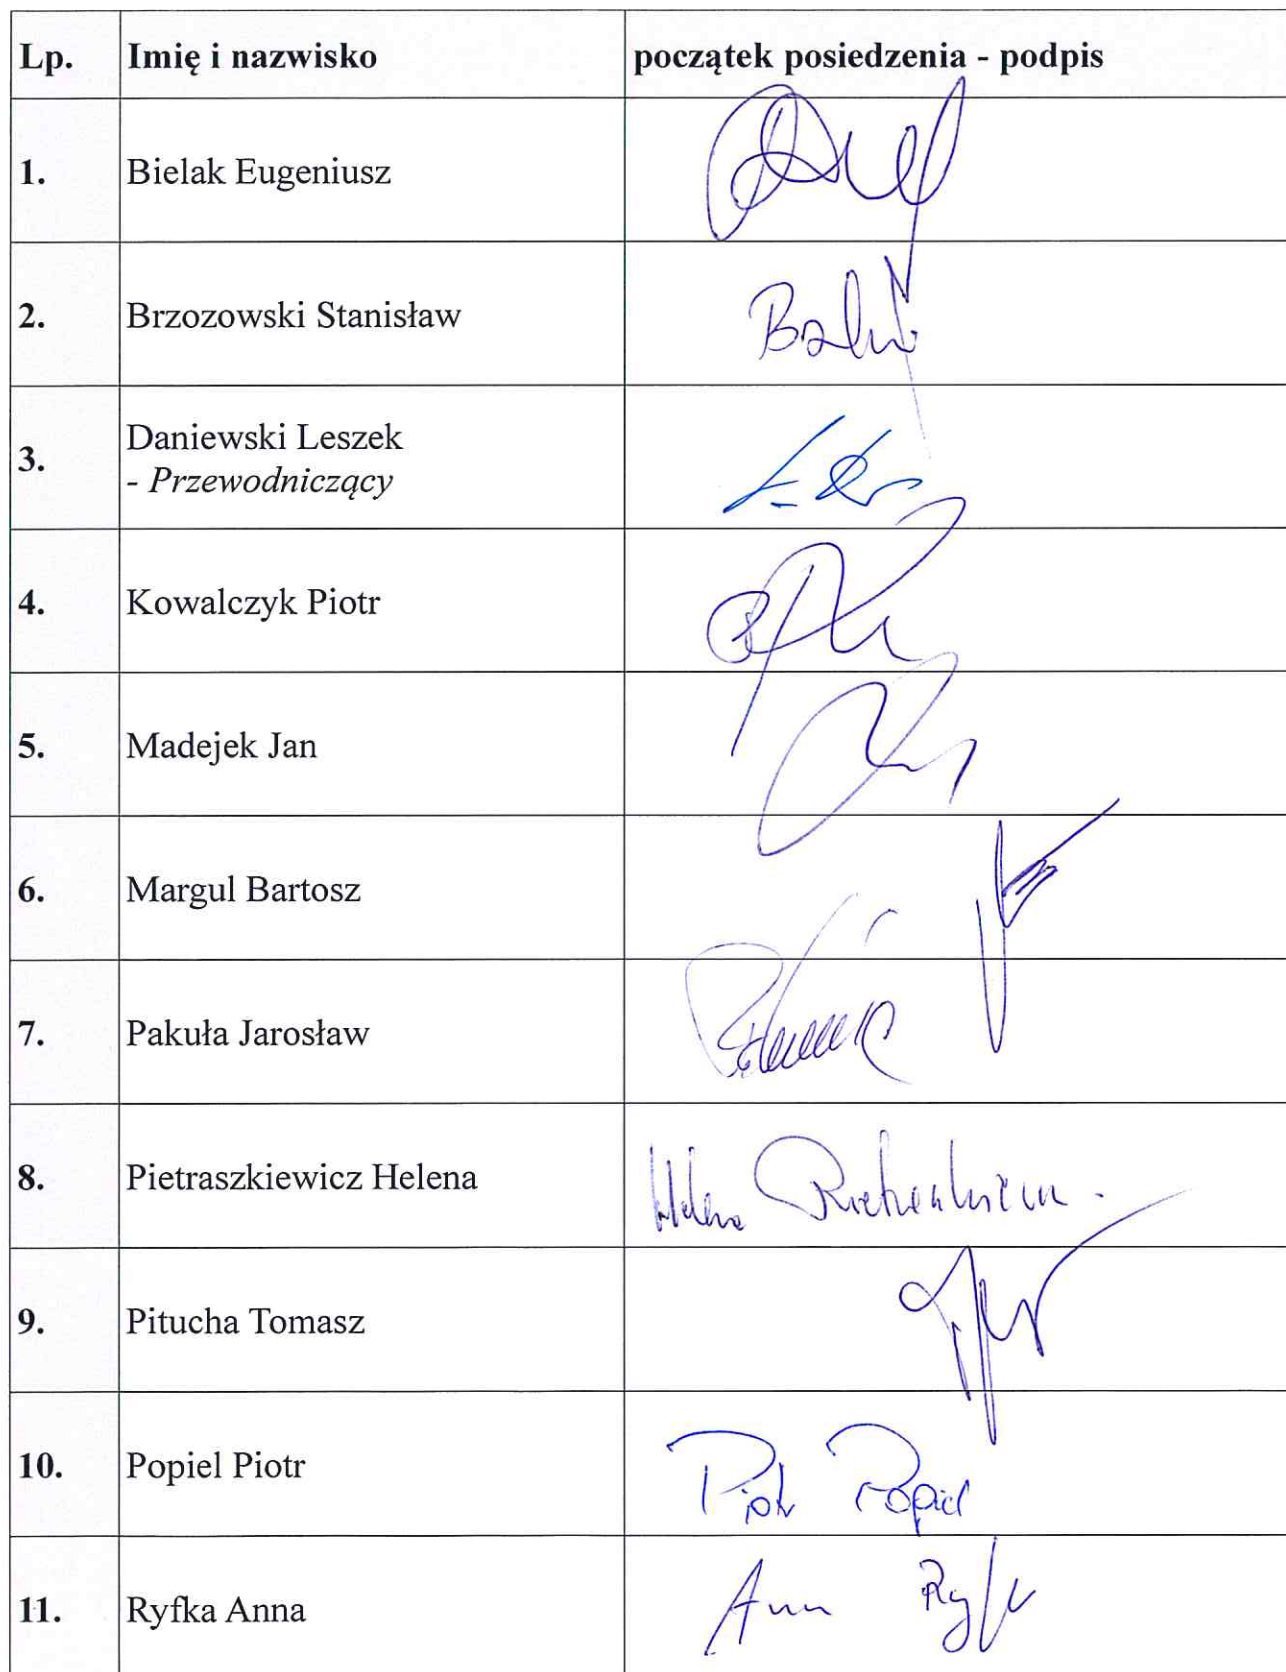 Lp. Imię i nazwisko początek posiedzenia - podpis
1. Bielak Eugeniusz
2. Brzozowski Stanisław
3. Daniewski Leszek
- Przewodniczący
4. Kowalczyk Piotr
5. Madejek Jan
6. Margul Bartosz
7. Pakuła Jarosław
8. Pietraszkiewicz Helena Helena
9. Pitucha Tomasz
10. Popiel Piotr Piotr Popiel
11. Ryfka Anna Anna Ryfka